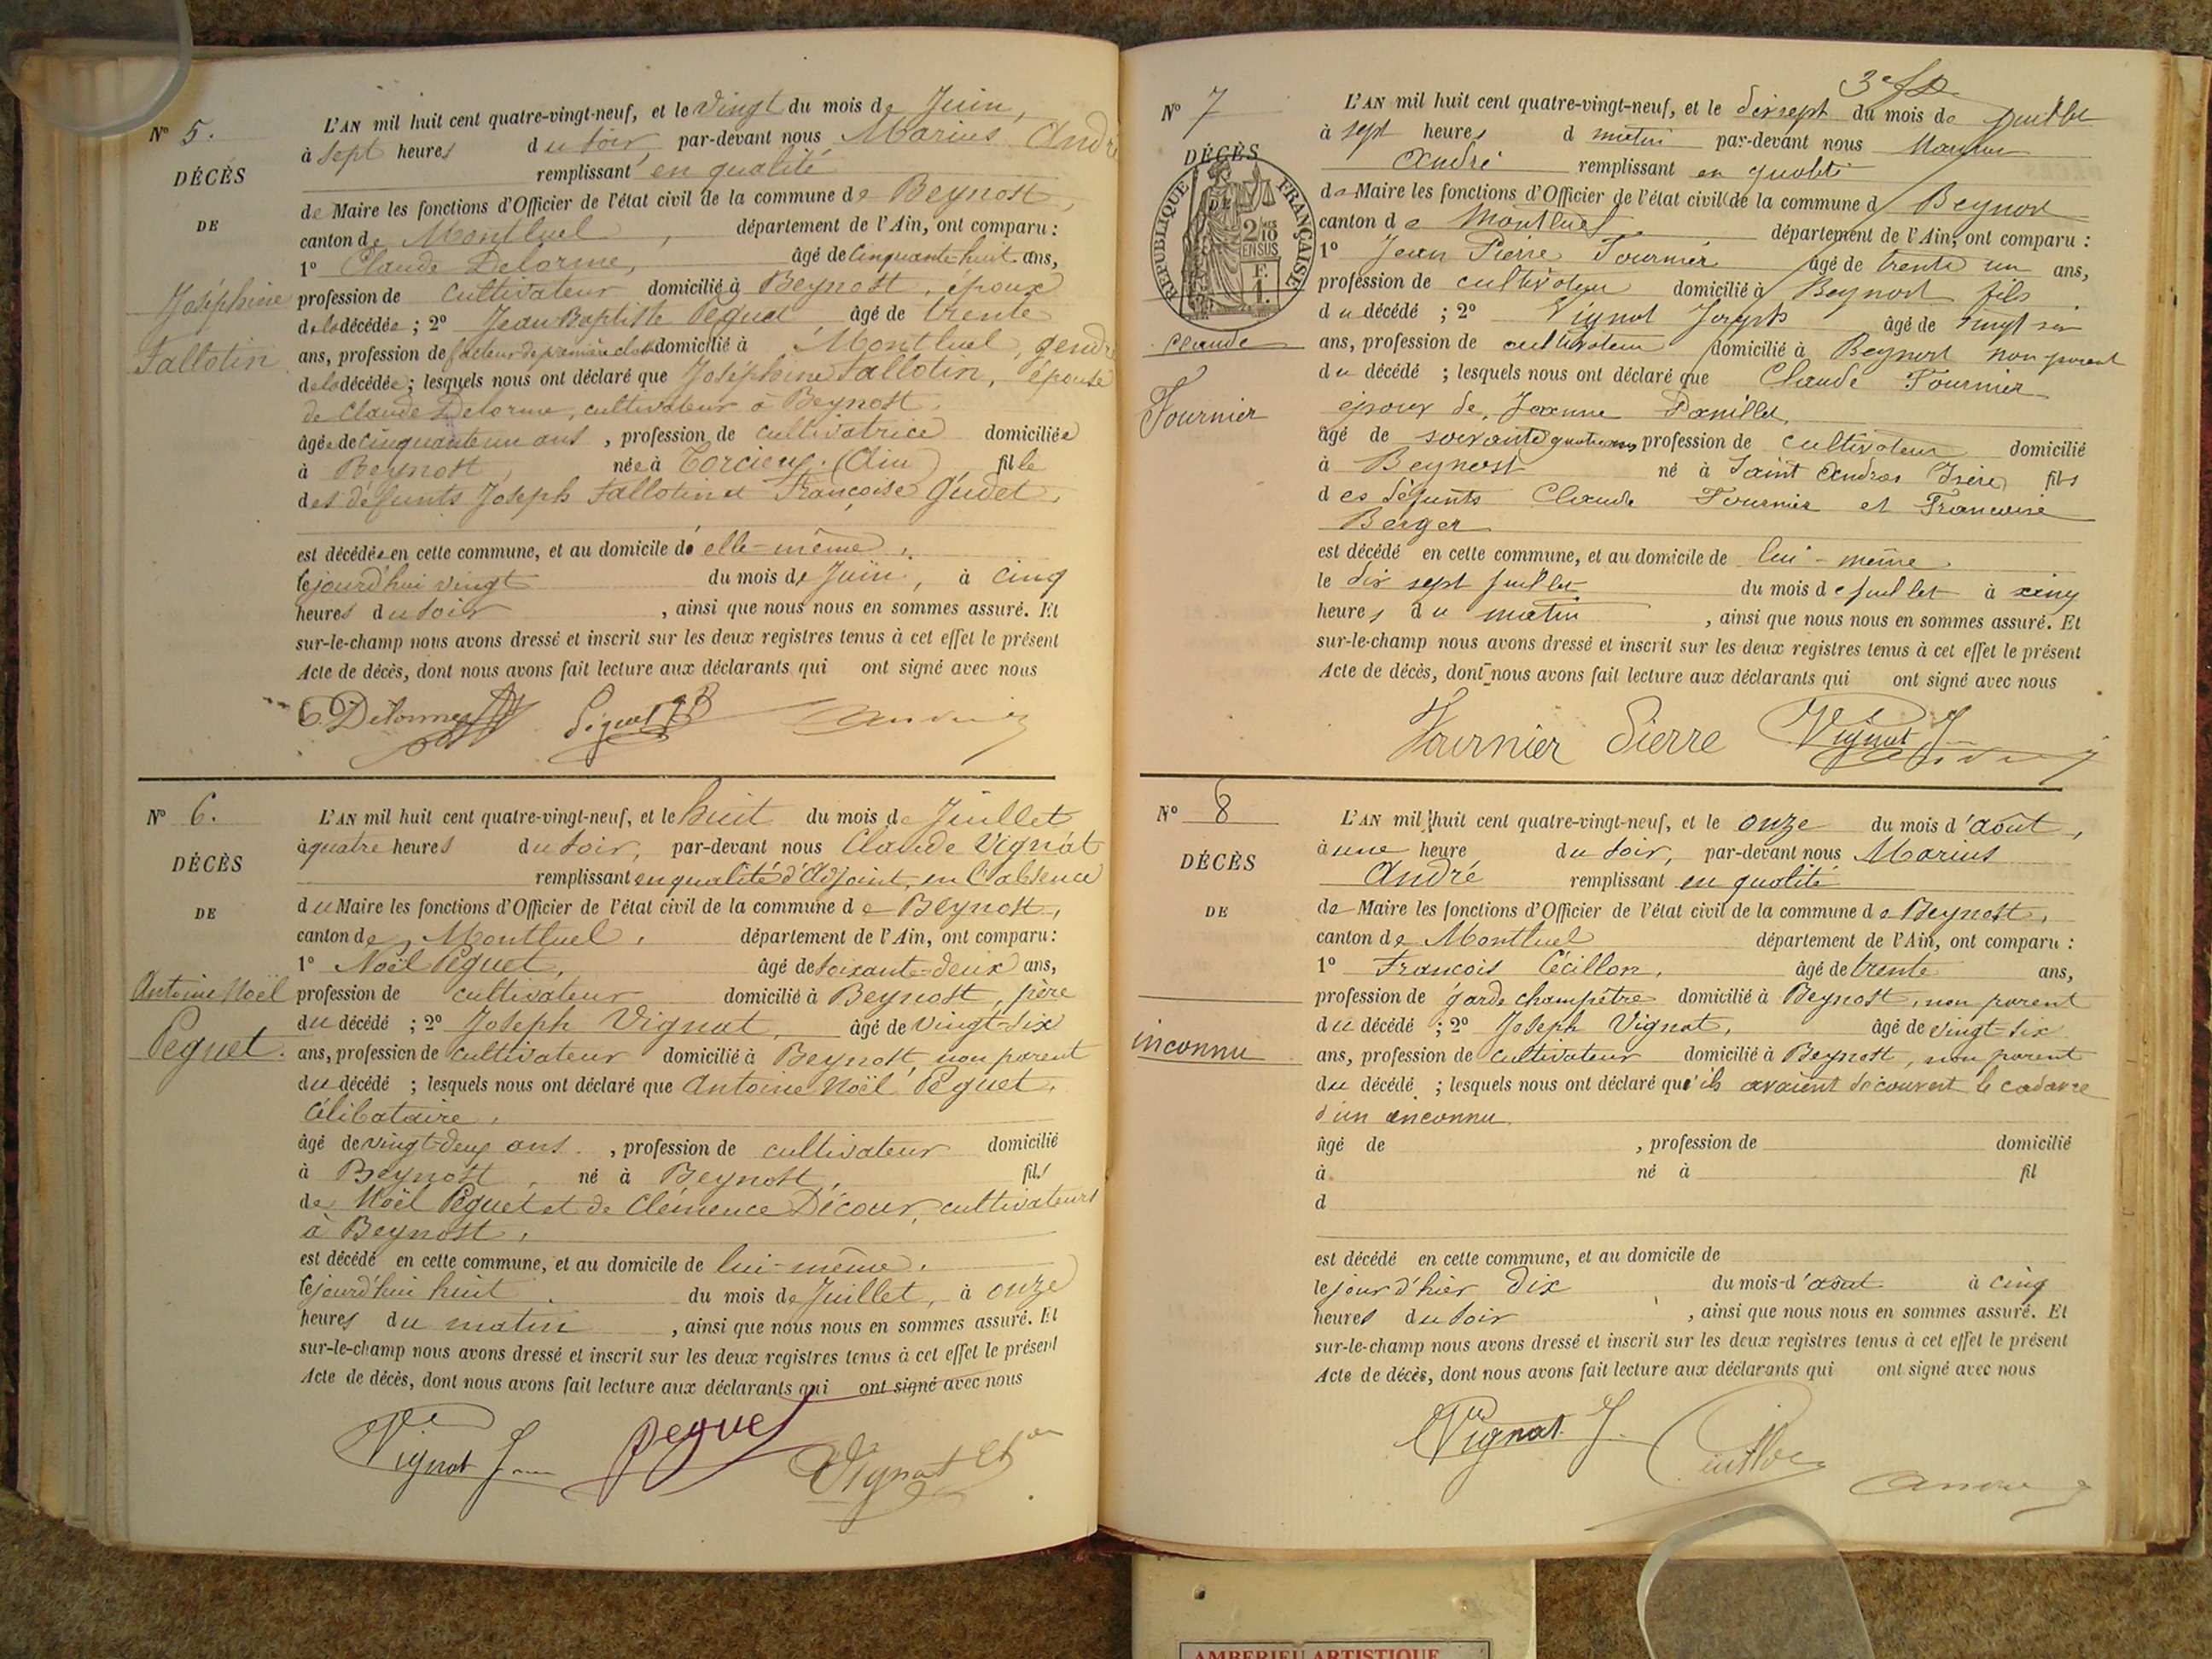 N° 5.
DÉCÈS
DE
Joséphine
Fallotin
L'AN mil huit cent quatre-vingt-neuf, et le Vingt du mois de Juin,
à sept heures du soir, par-devant nous Marius André
remplissant en qualité
de Maire les fonctions d'Officier de l'état civil de la commune de Beynost,
canton de Montluel, département de l'Ain, ont comparu :
1° Claude Delorme, âgé de cinquante-huit ans,
profession de cultivateur domicilié à Beynost, époux
de la décédée ; 2° Jean Baptiste Péguet âgé de trente
ans, profession de facteur de première classe domicilié à Montluel, gendre
de la décédée ; lesquels nous ont déclaré que Joséphine Fallotin, épouse
de Claude Delorme, cultivateur à Beynost,
âgée de cinquante un ans, profession de cultivatrice domiciliée
à Beynost, née à Torcieu (Ain) fille
des défunts Joseph Fallotin et Françoise Gudet,
est décédée en cette commune, et au domicile de elle-même,
le jourd'hui vingt du mois de Juin, à cinq
heures du soir, ainsi que nous nous en sommes assuré. Et
sur-le-champ nous avons dressé et inscrit sur les deux registres tenus à cet effet le présent
Acte de décès, dont nous avons fait lecture aux déclarants qui ont signé avec nous
C. Delorme Péguet JB André
N° 6.
DÉCÈS
DE
Antoine Noël
Péguet.
L'AN mil huit cent quatre-vingt-neuf, et le huit du mois de Juillet
à quatre heures du soir, par-devant nous Claude Vignat
remplissant en qualité d'Adjoint, en l'absence
du Maire les fonctions d'Officier de l'état civil de la commune de Beynost,
canton de Montluel, département de l'Ain, ont comparu :
1° Noël Péguet, âgé de soixante-deux ans,
profession de cultivateur domicilié à Beynost, père
du décédé ; 2° Joseph Vignat, âgé de vingt-six
ans, profession de cultivateur domicilié à Beynost, non parent
du décédé ; lesquels nous ont déclaré que Antoine Noël Péguet,
célibataire,
âgé de vingt-deux ans, profession de cultivateur domicilié
à Beynost, né à Beynost, fils
de Noël Péguet et de Clémence Décour, cultivateurs
à Beynost,
est décédé en cette commune, et au domicile de lui-même,
le jourd'hui huit du mois de Juillet, à onze
heures du matin, ainsi que nous nous en sommes assuré. Et
sur-le-champ nous avons dressé et inscrit sur les deux registres tenus à cet effet le présent
Acte de décès, dont nous avons fait lecture aux déclarants qui ont signé avec nous
Vignat J Peguet Vignat
N° 7
DÉCÈS
DE
RÉPUBLIQUE FRANÇAISE
2/10 EN SUS
Claude
Fournier
L'AN mil huit cent quatre-vingt-neuf, et le dix sept du mois de juillet
à sept heures d matin par-devant nous Marius
André remplissant en qualité
de Maire les fonctions d'Officier de l'état civil de la commune d Beynost
canton de Montluel département de l'Ain, ont comparu :
1° Jean Pierre Fournier âgé de trente un ans,
profession de cultivateur domicilié à Beynost fils
du décédé ; 2° Vignat Joseph âgé de vingt six
ans, profession de cultivateur domicilié à Beynost non parent
du décédé ; lesquels nous ont déclaré que Claude Fournier
époux de Jeanne Panillet
âgé de soixante quatre ans profession de cultivateur domicilié
à Beynost né à Saint Andras Isère fils
des défunts Claude Fournier et Francoise
Berger
est décédé en cette commune, et au domicile de lui-même
le dix sept juillet du mois de juillet à cinq
heures du matin, ainsi que nous nous en sommes assuré. Et
sur-le-champ nous avons dressé et inscrit sur les deux registres tenus à cet effet le présent
Acte de décès, dont nous avons fait lecture aux déclarants qui ont signé avec nous
Fournier Pierre Vignat J André
N° 8
DÉCÈS
DE
inconnu
L'AN mil huit cent quatre-vingt-neuf, et le onze du mois d'août,
à une heure du soir, par-devant nous Marius
André remplissant en qualité
de Maire les fonctions d'Officier de l'état civil de la commune de Beynost,
canton de Montluel département de l'Ain, ont comparu :
1° Francois Cécillon, âgé de trente ans,
profession de garde champêtre domicilié à Beynost, non parent
du décédé ; 2° Joseph Vignat, âgé de vingt-six
ans, profession de cultivateur domicilié à Beynost, non parent
du décédé ; lesquels nous ont déclaré qu'ils avaient découvert le cadavre
d'un inconnu
âgé de , profession de domicilié
à né à fil
d
est décédé en cette commune, et au domicile de
le jour d'hier dix du mois d'août à cinq
heures du soir, ainsi que nous nous en sommes assuré. Et
sur-le-champ nous avons dressé et inscrit sur les deux registres tenus à cet effet le présent
Acte de décès, dont nous avons fait lecture aux déclarants qui ont signé avec nous
Vignat J. André
AMBERIEU ARTISTIQUE